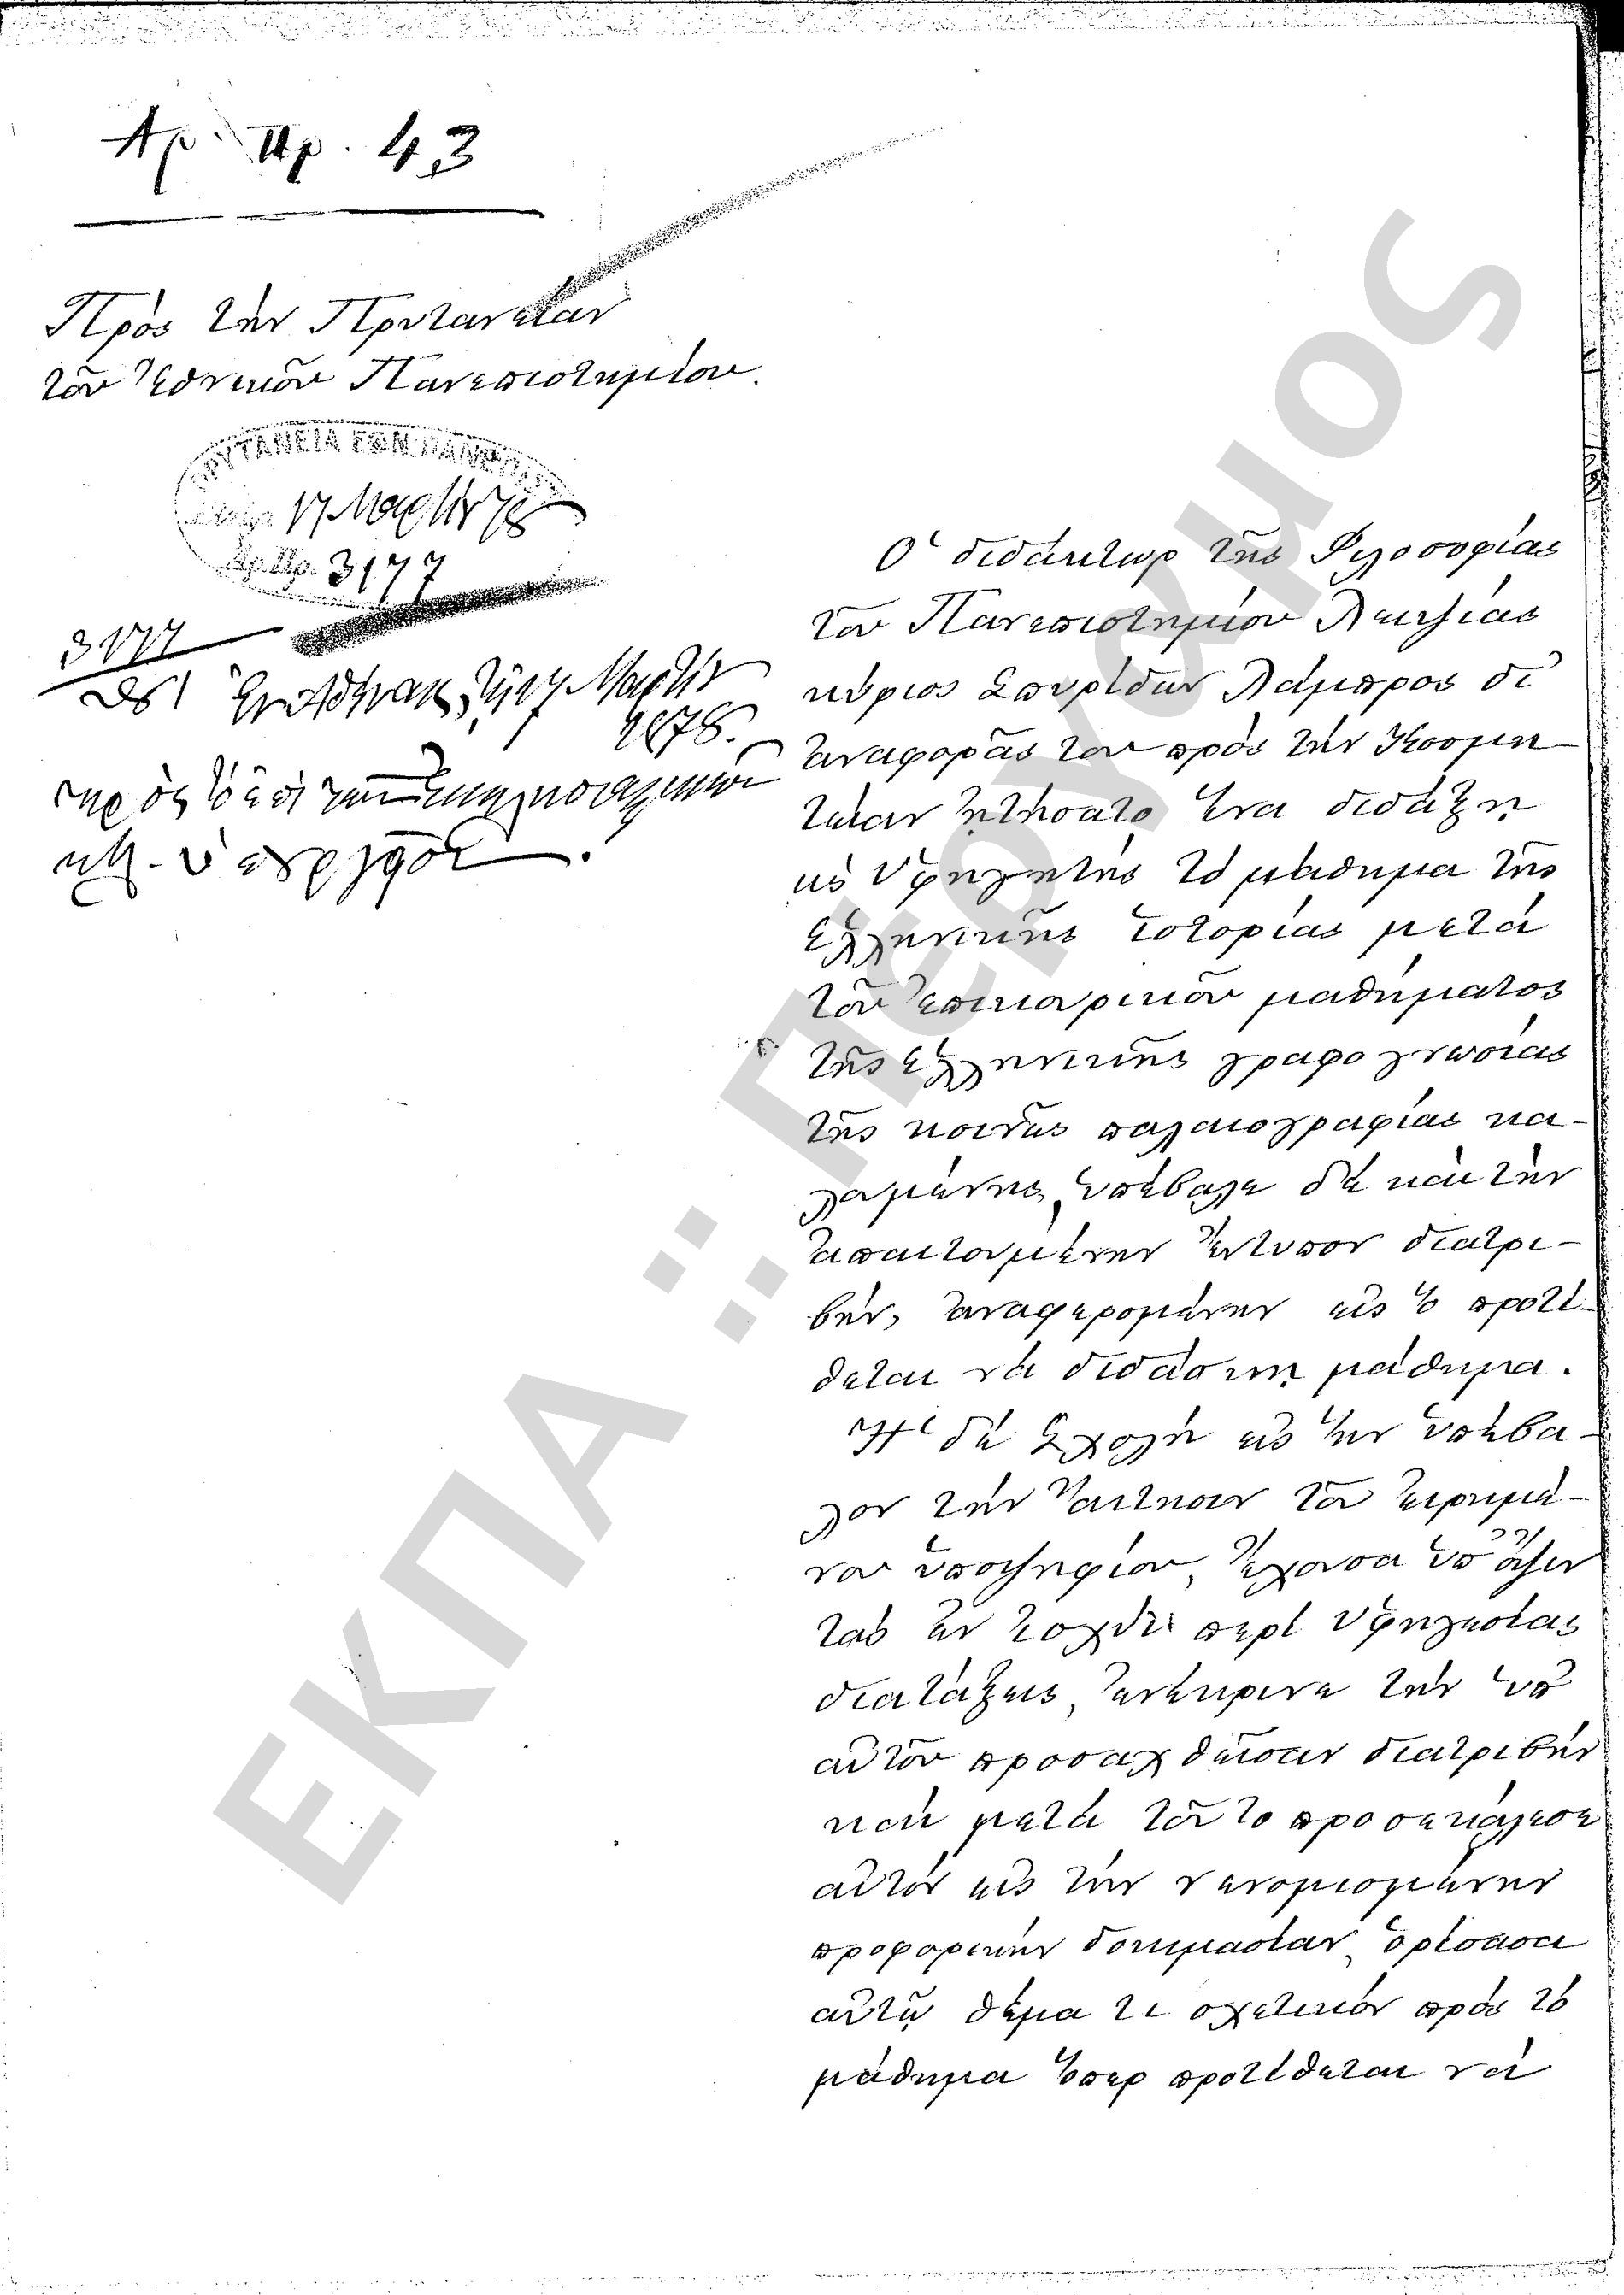 Αρ. Πρ. 43
Πρὸς τὴν Πρυτανείαν
τοῦ Ἐθνικοῦ Πανεπιστημίου.
ΠΡΥΤΑΝΕΙΑ ΕΘΝ. ΠΑΝΕΠΙΣΤ
17 Μαρτίου 78
Αρ. Πρ. 3177
3177
Ἐν Ἀθήναις τῇ 17 Μαρτίου
1878.
Ὁ διδάκτωρ τῆς Φιλοσοφίας
τοῦ Πανεπιστημίου Λειψίας
κύριος Σπυρίδων Λάμπρος δι'
ἀναφορᾶς του πρὸς τὴν Κοσμη-
τείαν ᾐτήσατο ἵνα διδάξῃ
ὡς Ὑφηγητὴς τὸ μάθημα τῆς
Ἑλληνικῆς ἱστορίας μετὰ
τοῦ ἐπικουρικοῦ μαθήματος
τῆς Ἑλληνικῆς γραφογνωσίας
τῆς κοινῶς παλαιογραφίας κα-
λουμένης, ὑπέβαλε δὲ καὶ τὴν
ἀπαιτουμένην ἔντυπον διατρι-
βήν, ἀναφερομένην εἰς ὃ προτί-
θεται νὰ διδάσκῃ μάθημα.
Ἡ δὲ Σχολὴ εἰς ἣν ὑπέβα-
λον τὴν αἴτησιν τοῦ εἰρημέ-
νου ὑποψηφίου, ἔχουσα ὑπ' ὄψιν
τὰς ἐν ἰσχύϊ περὶ Ὑφηγεσίας
διατάξεις, ἐνέκρινε τὴν ὑπ'
αὐτοῦ προσαχθεῖσαν διατριβήν
καὶ μετὰ τοῦτο προσεκάλεσε
αὐτὸν εἰς τὴν νενομισμένην
προφορικὴν δοκιμασίαν, ὁρίσασα
αὐτῷ θέμα τι σχετικὸν πρὸς τὸ
μάθημα ὅπερ προτίθεται νὰ
ΕΚΠΑ :: Πέργαμος